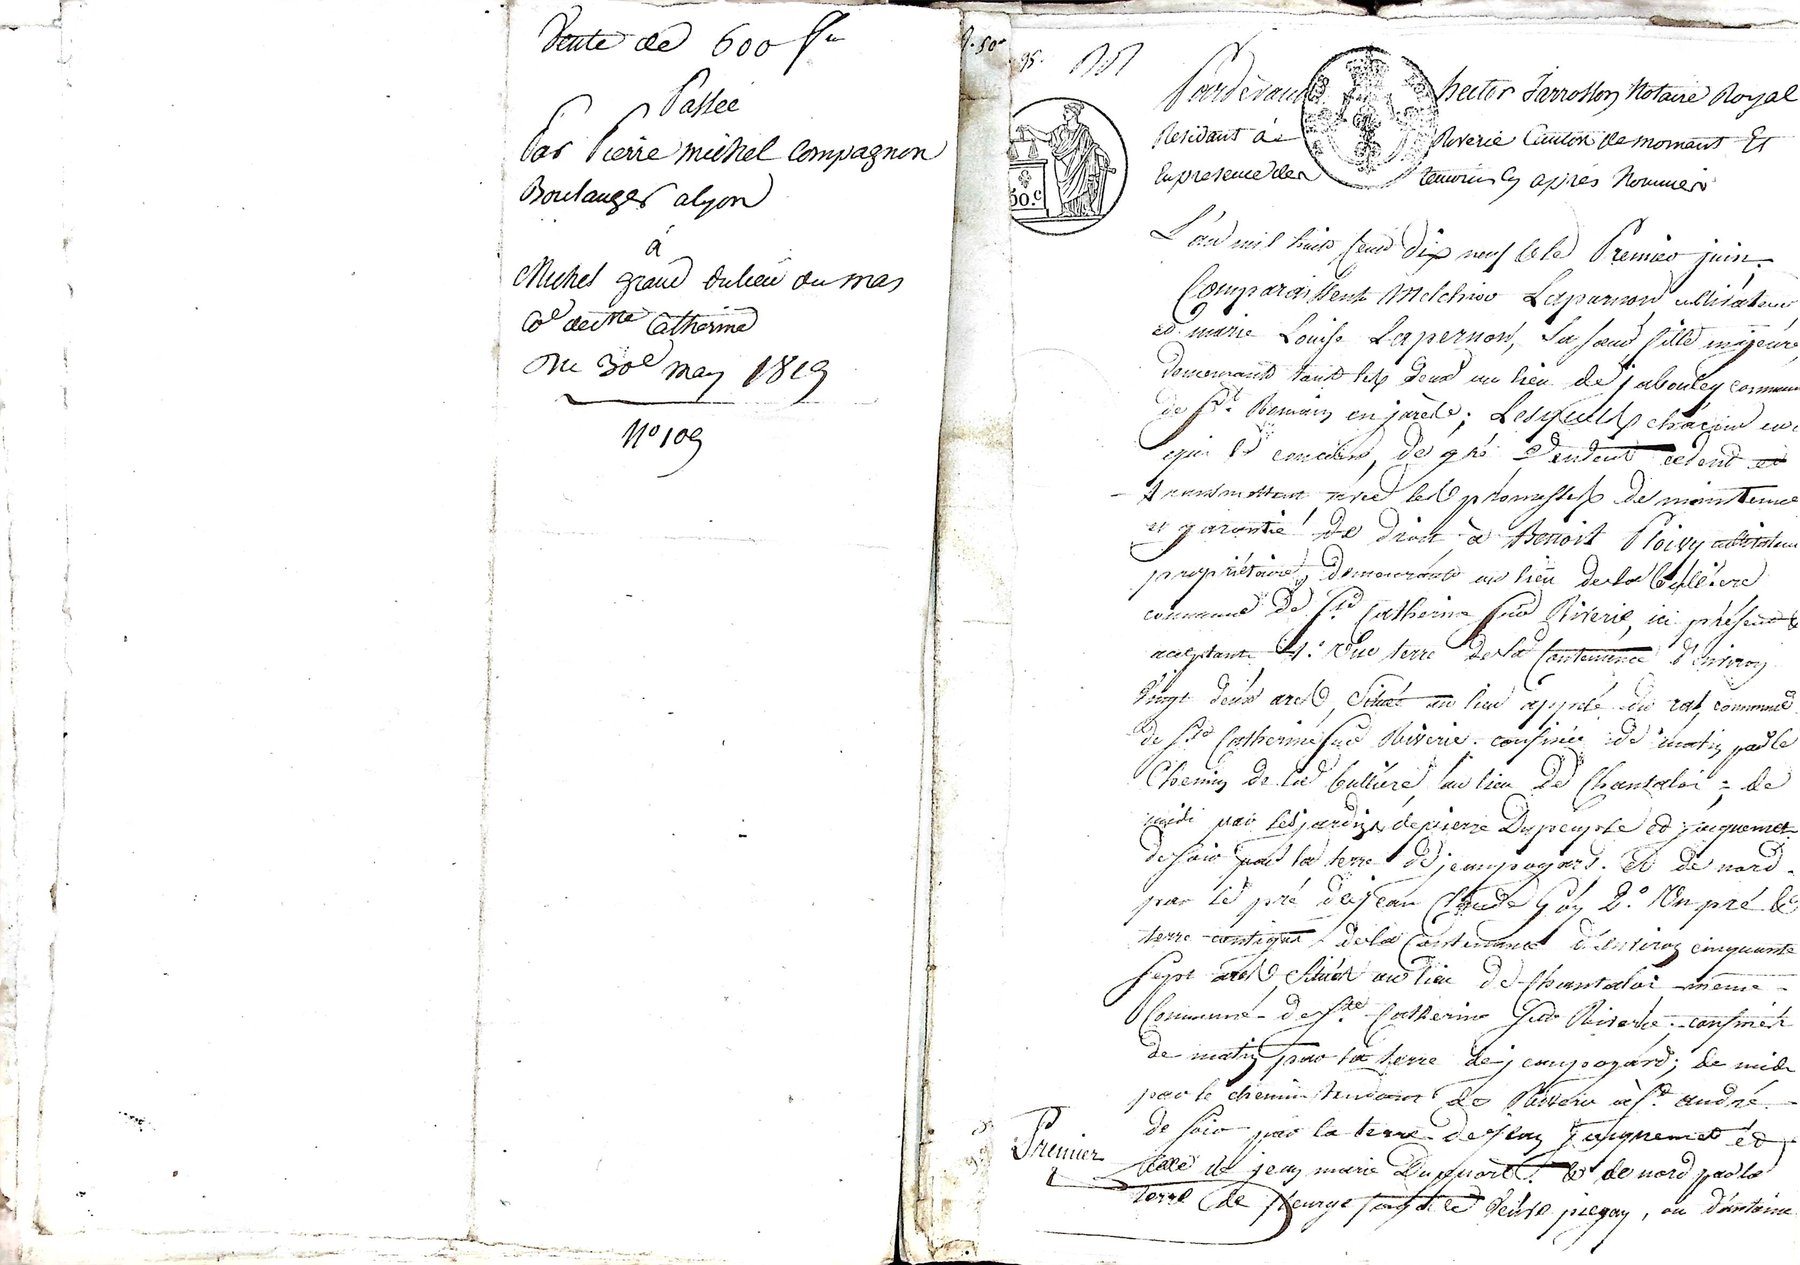 Vente de 600 fr
Passée
Par Pierre michel Compagnon
Boulanger alyon
á
Michel grand dulieu du mas
Coe de Ste Catherine
Du 30e may 1819
No 109
f. 50c
95.
50.c
Pardevant hector Jarrosson Notaire Royal
Residant á Riverie Canton de mornant Et
En presence des temoins cy après Nommés
L'an mil huit Cent dix neuf & le Premier juin
Comparaissent Melchior Lapernon, cultivateur,
et marie Louise Lapernon, sa sœur fille majeure,
demeurants tous les deux au lieu de jabouley commune
de St. Romain en jarèt; Lesquels chacun en ce
qui le concerne, de gré Vendent cedent et
transmettent avec les promesses de maintenue
et garantie de droit, à Benoit Poivy cultivateur
propriétaire, demeurant au lieu de la bullière
commune de Ste Catherine sur Riverie, ici présent &
acceptant 1.° Une terre de la Contenance d'environ
Vingt deux ares, Située au lieu appelé du rat, commune
de Ste Catherine sur Riverie. confinée de matin par le
Chemin de la bullière au lieu de Chantaloi = de
midi par les jardins de pierre Dupeuple et jacquemet
de soir par la terre de jean poyard. et de nord
par le pré de jean Claude Goy 2.° Un pré &
terre contigus de la Contenance d'environ cinquante
sept ares, Situés au lieu de Chantaloi même
Commune de Ste. Catherine sur Riverie. confinés
de matin par la terre de jean poyard; de midi
par le chemin tendant de Riverie à St. andré.
de soir par la terre de jean jacquemet et
celle de jean marie Dupuoèt. & de nord par la
terre de Veuve piegay, ou d'antoine
Premier